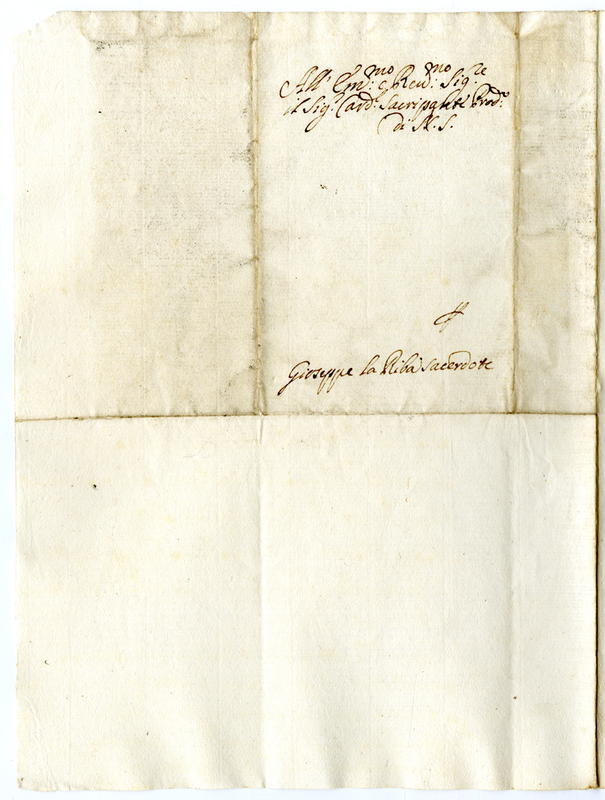 All' Em.mo e Rev.mo Sig.re
il Sig.r Card.l Sacripante Prod.o
di N. S.
Gioseppe la Riba Sacerdote